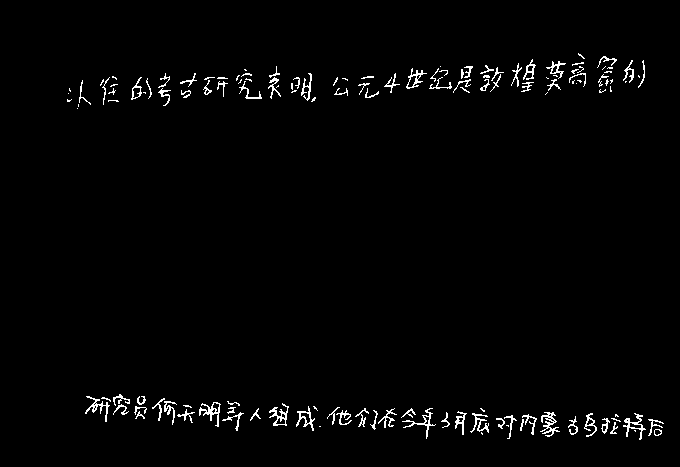 以往的考古研究表明,公元4世纪是敦煌莫高窟的
研究员何天明等人组成.他们在今年3月底对内蒙古乌拉特后